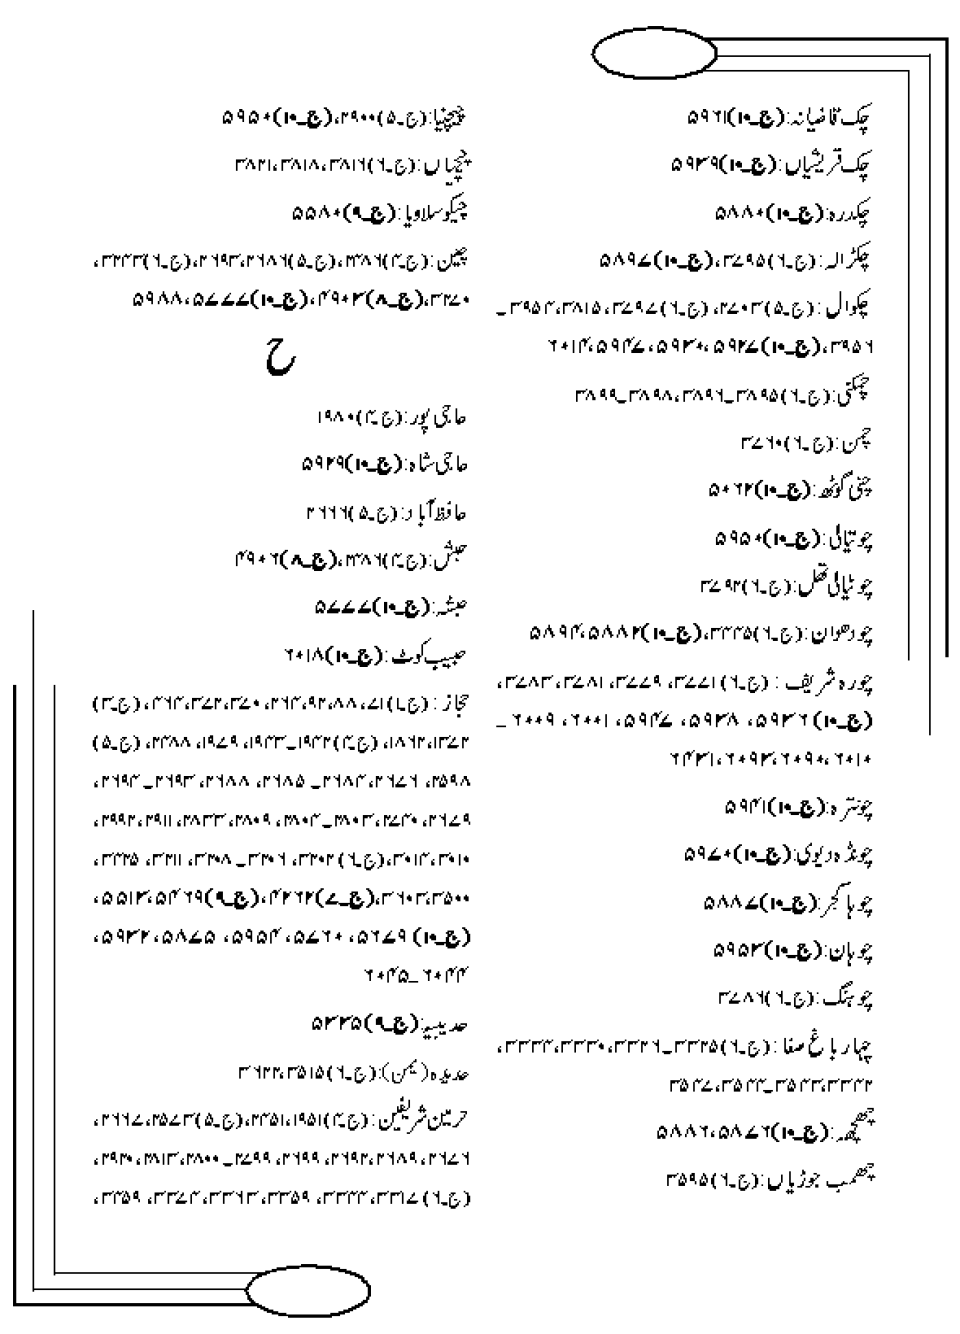 چک قاضیانہ:(ج۔۱۰)۵۹۲۱
چک قریشیاں:(ج۔۱۰)۵۹۳۹
چکدرہ:(ج۔۱۰)۵۸۸۰
چکڑالہ:(ج۔۶)۳۷۹۵،(ج۔۱۰)۵۸۹۷
چکوال:(ج۔۵)۲۷۰۳،(ج۔۶)۳۷۹۷،۳۸۱۵،۳۹۵۴۔
۳۹۵۶،(ج۔۱۰)۵۹۲۷،۵۹۳۰،۵۹۴۷،۶۰۱۴
چمکنی:(ج۔۶)۳۸۹۵۔۳۸۹۶،۳۸۹۸۔۳۸۹۹
چمن:(ج۔۶)۳۷۶۰
چنی گوٹھ:(ج۔۱۰)۵۰۶۲
چوتیالی:(ج۔۱۰)۵۹۵۰
چوٹیالی تھل:(ج۔۶)۳۷۹۲
چودھوان:(ج۔۶)۳۴۴۵،(ج۔۱۰)۵۸۸۲،۵۸۹۴
چورہ شریف:(ج۔۶)۳۷۷۱، ۳۷۷۹، ۳۷۸۱،۳۷۸۳،
(ج۔۱۰)۵۹۳۶، ۵۹۳۸، ۵۹۴۷، ۶۰۰۱، ۶۰۰۹۔
۶۰۱۰،۶۰۹۰،۶۰۹۳،۶۴۳۱
چونترہ:(ج۔۱۰)۵۹۴۱
چونڈہ دیوی:(ج۔۱۰)۵۹۷۰
چوہا گجر:(ج۔۱۰)۵۸۸۷
چوہان:(ج۔۱۰)۵۹۵۳
چوہنگ:(ج۔۶)۳۷۸۶
چہار باغ صفا:(ج۔۶)۳۳۲۵۔۳۳۲۶،۳۳۳۰،۳۳۳۴،
۳۳۴۲،۳۵۴۳۔۳۵۴۴،۳۵۴۷
چھچھ:(ج۔۱۰)۵۸۷۶،۵۸۸۶
چھمب جوڑیاں:(ج۔۶)۳۵۹۵
چیچنیا:(ج۔۵)۲۹۰۰،(ج۔۱۰)۵۹۵۰
چیچیاں:(ج۔۶)۳۸۱۶،۳۸۱۸،۳۸۲۱
چیکوسلاویا:(ج۔۹)۵۵۸۰
چین:(ج۔۴)۲۳۸۶،(ج۔۵)۲۶۸۶،۲۶۹۳،(ج۔۶)۳۲۴۳،
۳۲۷۰،(ج۔۸)۴۹۰۳،(ج۔۱۰)۵۷۷۷،۵۹۸۸
ح
حاجی پور:(ج۔۴)۱۹۸۰
حاجی شاہ:(ج۔۱۰)۵۹۲۹
حافظ آباد:(ج۔۵)۲۶۶۶
حبش:(ج۔۴)۲۳۸۶،(ج۔۸)۴۹۰۶
حبشہ:(ج۔۱۰)۵۷۷۷
حبیب کوٹ:(ج۔۱۰)۶۰۱۸
حجاز:(ج۔۱)۷۱،۸۸،۹۲،۲۶۴، ۲۷۰،۳۷۲،۴۶۴، (ج۔۳)
۱۳۷۲،۱۸۶۲، (ج۔۴)۱۹۴۲۔۱۹۴۳، ۱۹۷۹، ۲۴۸۸، (ج۔۵)
۲۵۹۸، ۲۶۷۶،۲۶۸۴۔ ۲۶۸۵، ۲۶۸۸، ۲۶۹۳۔۲۶۹۴،
۲۶۷۹، ۲۷۴۰،۲۸۰۳۔۲۸۰۴، ۲۸۰۹، ۲۸۳۳، ۲۹۱۱، ۲۹۹۲،
۳۰۱۰،۳۰۱۴،(ج۔۶)۳۲۰۲، ۳۲۰۶۔ ۳۲۰۸، ۳۲۱۱، ۳۲۲۵،
۳۵۰۰،۳۶۰۳،(ج۔۷)۴۲۶۲،(ج۔۹)۵۴۶۹،۵۵۱۳،
(ج۔۱۰)۵۶۷۹، ۵۷۶۰،۵۹۵۴، ۵۸۷۵،۵۹۳۲،
۶۰۴۴۔۶۰۴۵
حدیبیہ:(ج۔۹)۵۳۳۵
حدیدہ (یمن):(ج۔۶)۳۵۱۵،۳۶۲۲
حرمین شریفین:(ج۔۴)۱۹۵۱،۲۴۵۱،(ج۔۵)۲۵۷۳،۲۶۶۷،
۲۶۷۶،۲۶۸۹،۲۶۹۲، ۲۶۹۹، ۲۷۹۹۔۲۸۰۰،۲۸۱۳،۲۹۲۰،
(ج۔۶)۳۳۱۷،۳۳۴۴، ۳۳۵۹، ۳۳۶۳،۳۳۷۴، ۳۴۵۹،